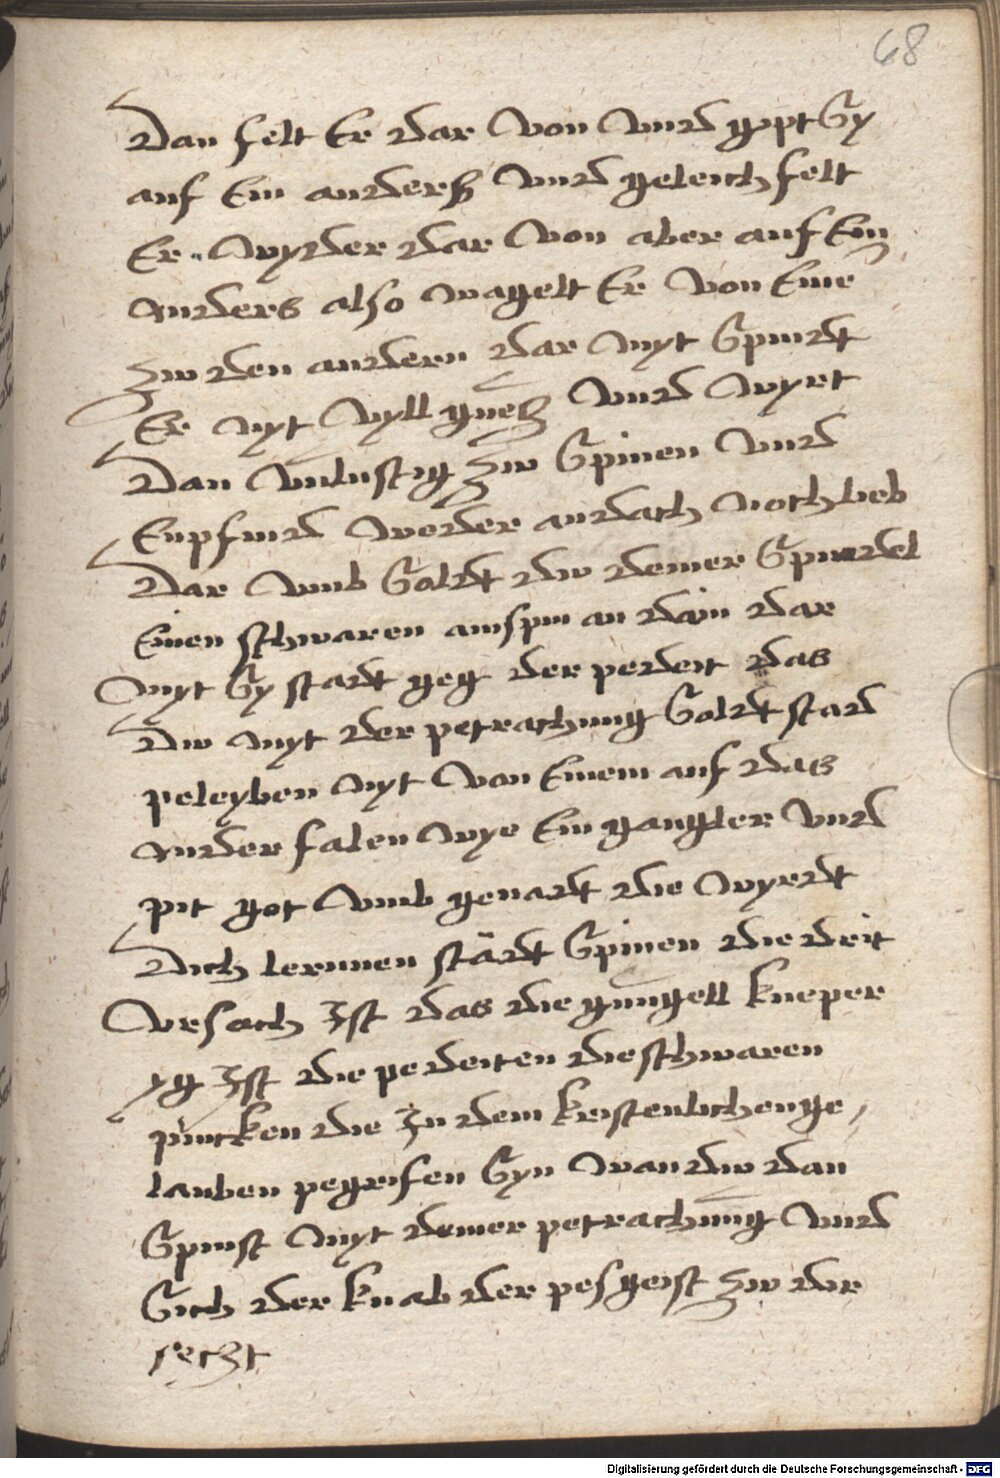 68
Dan felt Er dar Von Vnd gypt Sy
auf Ein anderß Vnd geleich felt
Er wyder dar Von aber auf Ein
Anders also wagelt Er Von Eine
zw den andern dar Myt Spindt
Er nyt Vyll gueß Vnd wyrt
Dan Vnlustig zw Spinen Vnd
Enpfind weder andach Noch lieb
Dar Vmb Soldt dw deiner Spindel
Einen schwaren ainspin an däin dar
Myt Sy stadt geg der perdeit das
Dw Myt der petrachung Soldt stad
peleyben Nyt Von Einem auf das
Ander falen wye Ein gaugler Vnd
pit got Vmb genadt die wyrdt
Dich lernnen städt Spinen die drit
Vrsach Ist das die gungell kneper
yg Ist die pedeiten die schwaren
pincken die In dem kristenlichen ge
lauben pegrifen Syn wan dw dan
Spinst Myt deiner petrachung Vnd
Sich der knab der pesgeist zw dir
secht
Digitalisierung gefördert durch die Deutsche Forschungsgemeinschaft - DFG